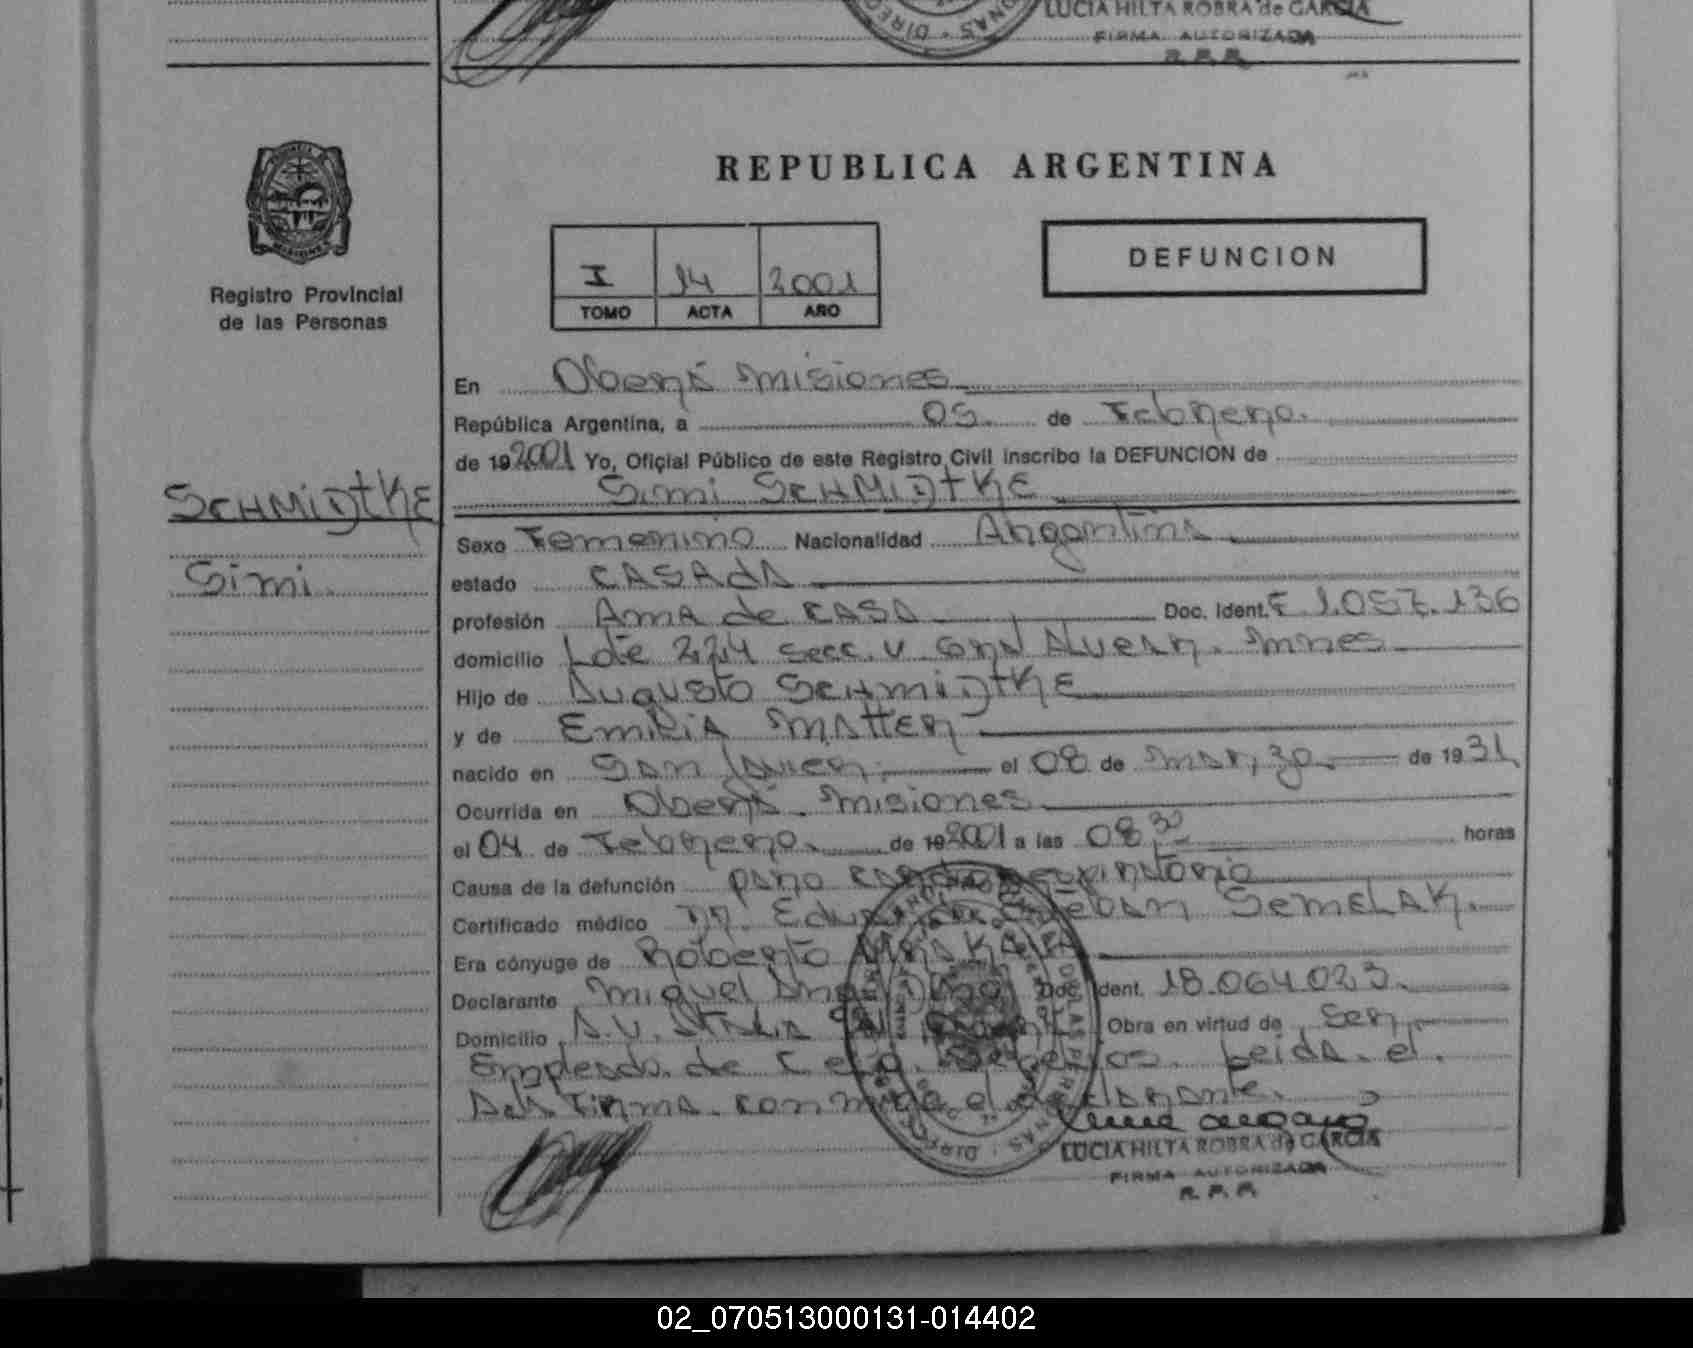 LUCIA HILTA ROBRA de GARCIA
FIRMA AUTORIZADA
R. P. P.
REPUBLICA ARGENTINA
Registro Provincial
de las Personas
I 14 2001
TOMO ACTA AÑO
DEFUNCION
En Oberá Misiones
República Argentina, a 05 de Febrero.
de 19 2001 Yo, Oficial Público de este Registro Civil inscribo la DEFUNCION de
Simi SCHMIDTKE
SCHMIDTKE
Simi.
Sexo Femenino Nacionalidad Argentina
estado CASAdA
profesión Ama de CASA Doc. Ident. F 1.057.136
domicilio Lote 224 secc. V Gral Alvear. Mnes
Hijo de Augusto SCHMIDTKE
y de Emilia MATTER
nacido en San Javier. el 08 de Marzo. de 19 31
Ocurrida en Oberá. Misiones
el 04 de Febrero. de 19 2001 a las 08,30 horas
Causa de la defunción paro cardiorespiratorio
Certificado médico Dr. Esteban SEMELAK.
Era cónyuge de Roberto
Declarante Miguel Doc. Ident. 18.064.023.
Domicilio A.V. ITALIA Obra en virtud de ser
Empleado. de Leida. el.
Acta Firma. conmigo el declarante.
LUCIA HILTA ROBRA de GARCIA
FIRMA AUTORIZADA
R. P. P.
02_070513000131-014402